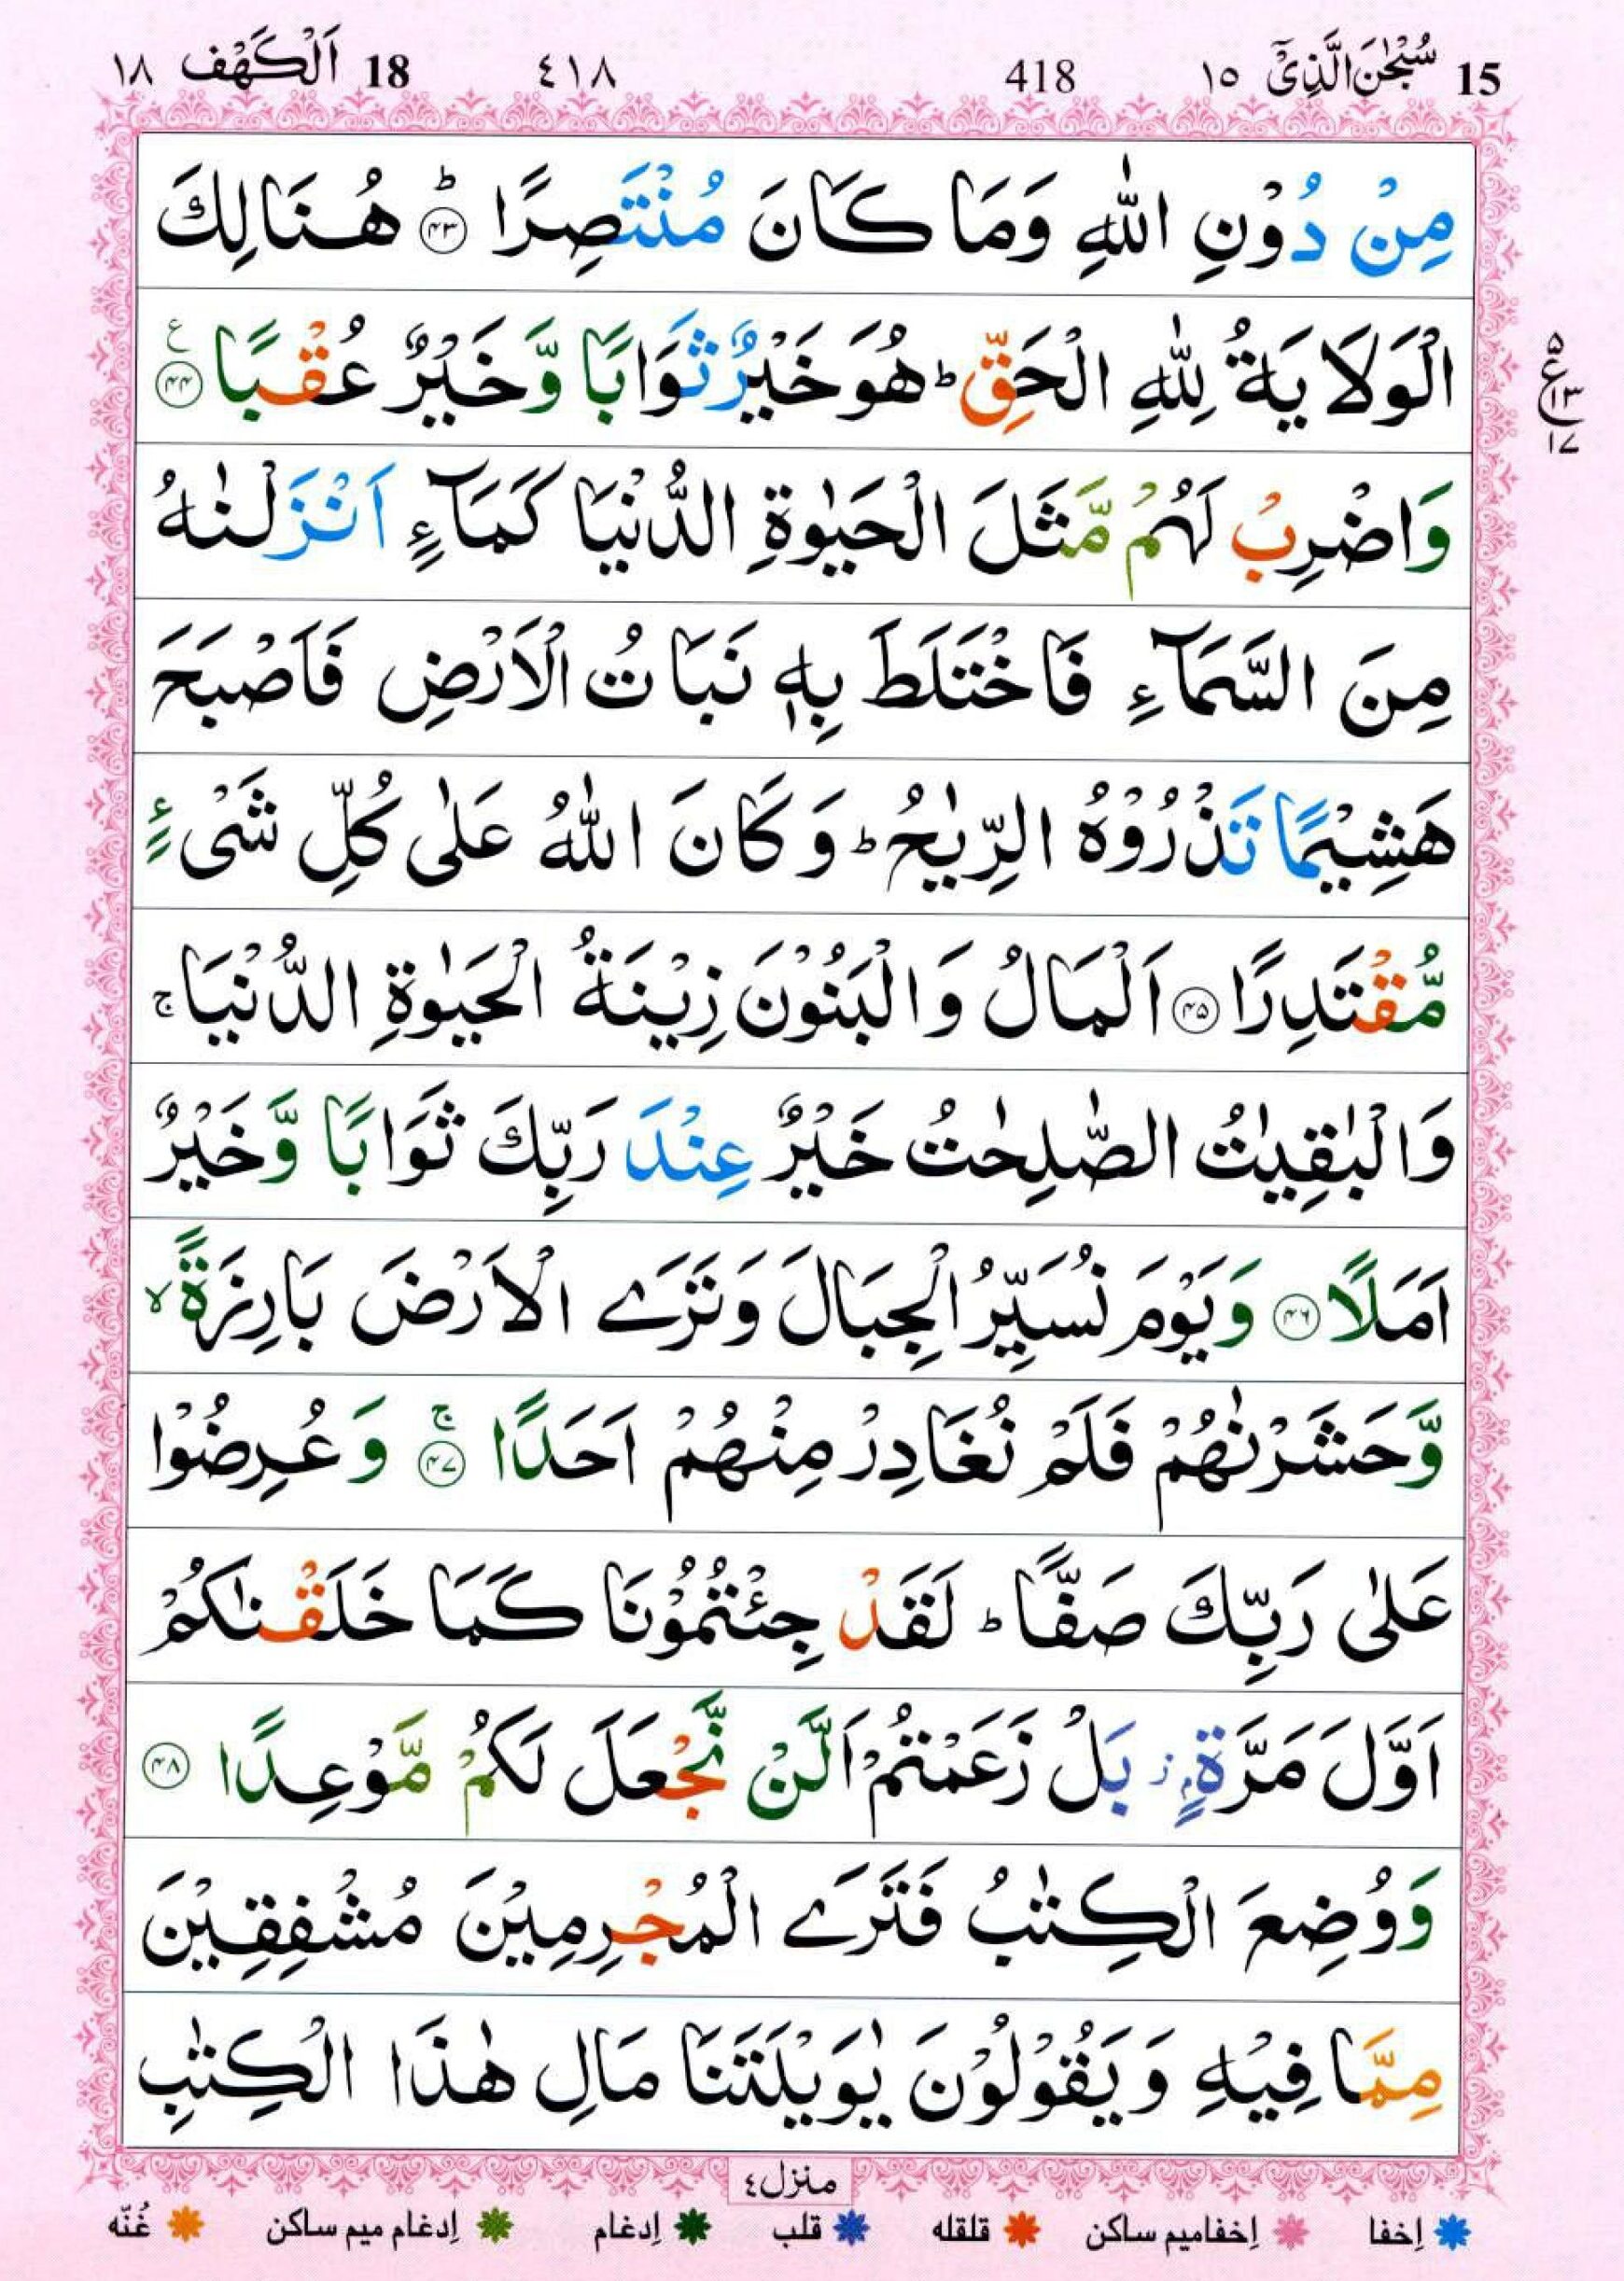 15 سُبْحٰنَ الَّذِیْۤ ١٥ 418 ٤١٨ 18 اَلْكَهْف ١٨
مِنْ دُوْنِ اللّٰهِ وَمَا كَانَ مُنْتَصِرًا ؕ ﴿۴۳﴾ هُنَالِكَ
الْوَلَايَةُ لِلّٰهِ الْحَقِّ ؕ هُوَ خَيْرٌ ثَوَابًا وَّخَيْرٌ عُقْبًا ﴿۴۴﴾ ع
۵ ع ۱۳ ۱۷
وَاضْرِبْ لَهُمْ مَّثَلَ الْحَيٰوةِ الدُّنْيَا كَمَآءٍ اَنْزَلْنٰهُ
مِنَ السَّمَآءِ فَاخْتَلَطَ بِهٖ نَبَاتُ الْاَرْضِ فَاَصْبَحَ
هَشِيْمًا تَذْرُوْهُ الرِّيٰحُ ؕ وَكَانَ اللّٰهُ عَلٰى كُلِّ شَیْءٍ
مُّقْتَدِرًا ﴿۴۵﴾ اَلْمَالُ وَالْبَنُوْنَ زِيْنَةُ الْحَيٰوةِ الدُّنْيَا ۚ
وَالْبٰقِيٰتُ الصّٰلِحٰتُ خَيْرٌ عِنْدَ رَبِّكَ ثَوَابًا وَّخَيْرٌ
اَمَلًا ﴿۴۶﴾ وَيَوْمَ نُسَيِّرُ الْجِبَالَ وَتَرَى الْاَرْضَ بَارِزَةً ۙ
وَّحَشَرْنٰهُمْ فَلَمْ نُغَادِرْ مِنْهُمْ اَحَدًا ۚ ﴿۴۷﴾ وَعُرِضُوْا
عَلٰى رَبِّكَ صَفًّا ؕ لَقَدْ جِئْتُمُوْنَا كَمَا خَلَقْنٰكُمْ
اَوَّلَ مَرَّةٍۭ ز بَلْ زَعَمْتُمْ اَلَّنْ نَّجْعَلَ لَكُمْ مَّوْعِدًا ﴿۴۸﴾
وَوُضِعَ الْكِتٰبُ فَتَرَى الْمُجْرِمِيْنَ مُشْفِقِيْنَ
مِمَّا فِيْهِ وَيَقُوْلُوْنَ يٰوَيْلَتَنَا مَالِ هٰذَا الْكِتٰبِ
منزل ٤
اِخفا اِخفامیم ساکن قلقله قلب اِدغام اِدغام میم ساکن غُنّه